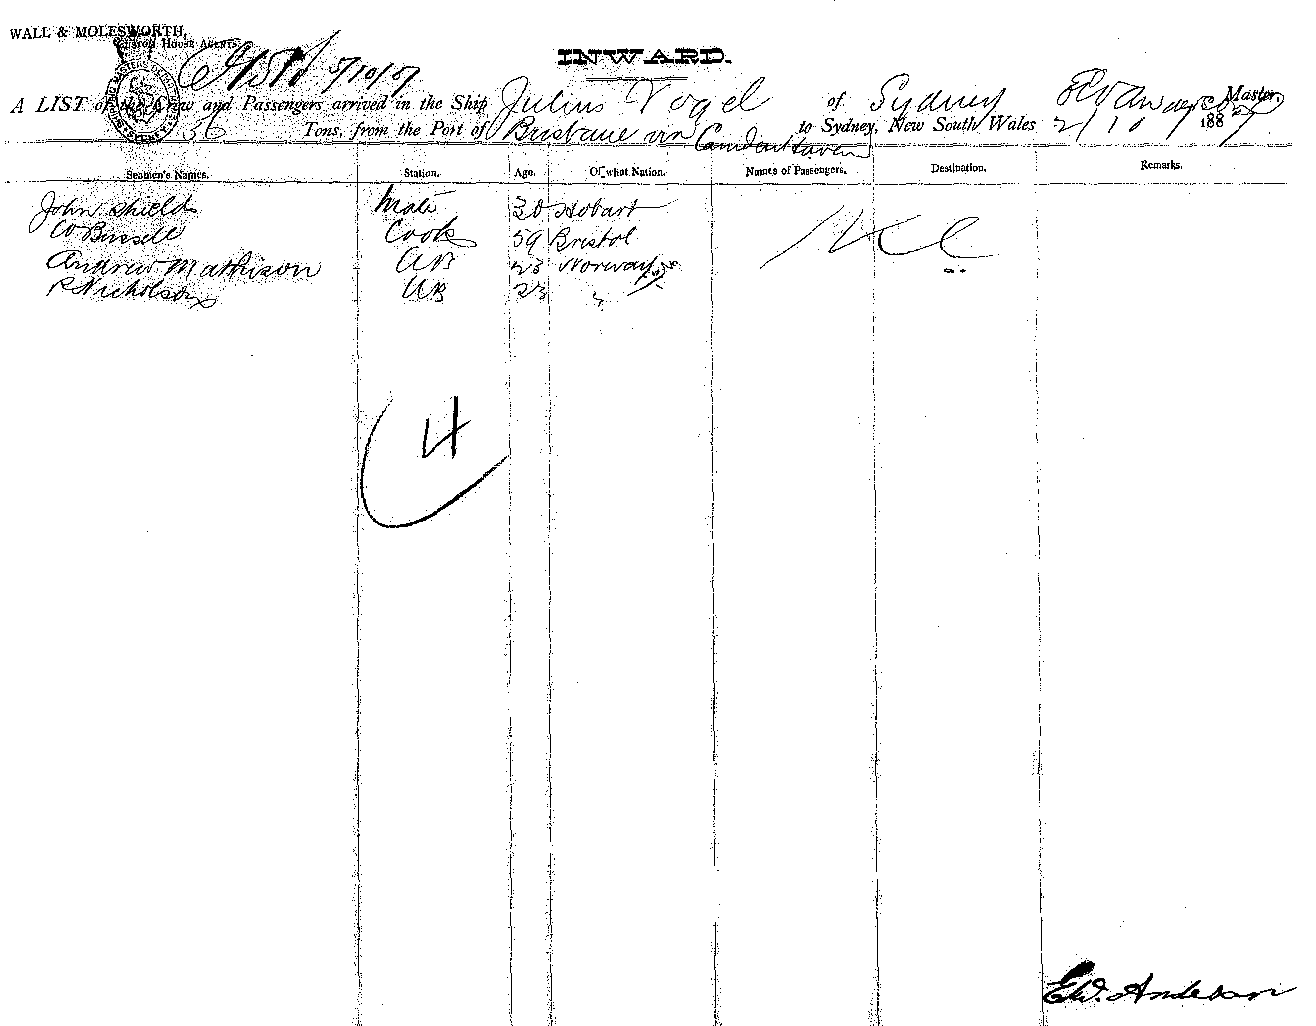 WALL & MOLESWORTH,
Custom House Agents
5/10/87
INWARD.
A LIST of the Crew and Passengers arrived in the Ship Julius Vogel of Sydney Master,
36 Tons, from the Port of Brisbane via Camden Haven to Sydney, New South Wales 2/10/1887
Seamen's Names. Station. Age. Of what Nation. Names of Passengers. Destination. Remarks.
John Shields Mate 30 Hobart Nil
W Bussell Cook 59 Bristol
Andrew Mathison AB 23 Norway
R Nicholson AB 23 "
4
Edw. Anderson